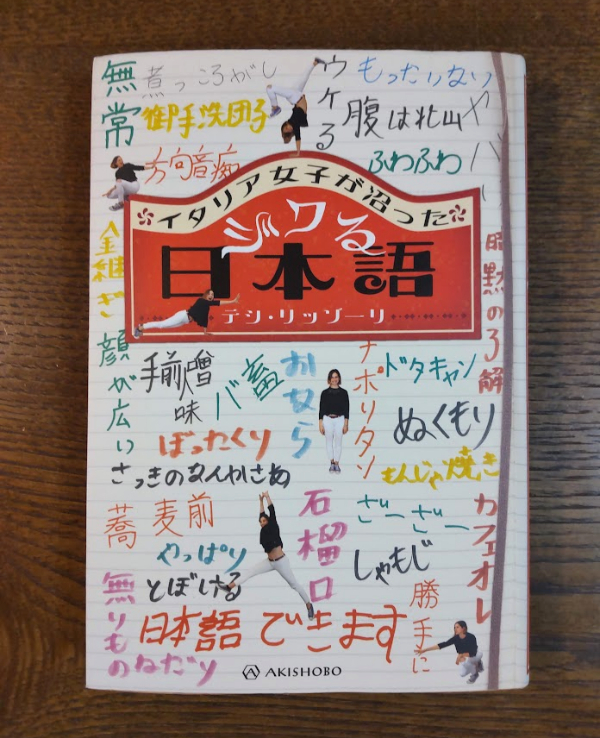 無常
煮っころがし
ウケる
もったいない
御手洗団子
腹は北山
ヤバい
方向音痴
ふわふわ
イタリア女子が沼った
ジワる
日本語
テシ・リッゾーリ
金継ぎ
暗黙の了解
顔が広い
手前味噌
バ畜
おなら
ナポリタン
ドタキャン
ぬくもり
ぼったくり
もんじゃ焼き
さっきのなんかさあ
蕎麦前
石榴口
ざーざー
カフェオレ
やっぱり
しゃもじ
とぼける
勝手に
無いものねだり
日本語できます
AKISHOBO